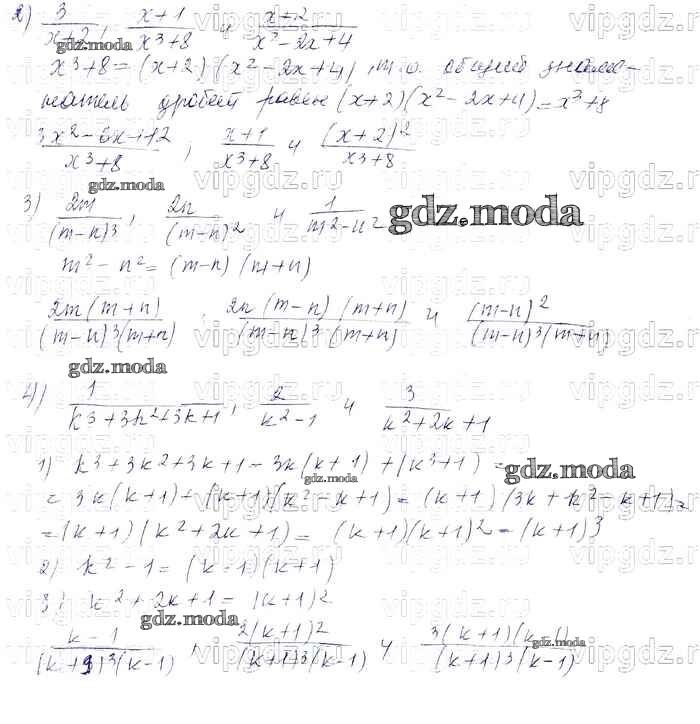 2) 3/(x+2), (x+1)/(x³+8) и (x+2)/(x²-2x+4)
x³+8 = (x+2)(x²-2x+4), т.о. общий знаме-
натель дробей равен (x+2)(x²-2x+4) = x³+8
(3x²-6x+12)/(x³+8) ; (x+1)/(x³+8) и (x+2)²/(x³+8)
3) 2m/(m-n)³, 2n/(m-n)² и 1/(m²-n²)
m²-n² = (m-n)(m+n)
2m(m+n)/((m-n)³(m+n)) ; 2n(m-n)(m+n)/((m-n)³(m+n)) и (m-n)²/((m-n)³(m+n))
4) 1/(k³+3k²+3k+1), 2/(k²-1) и 3/(k²+2k+1)
1) k³+3k²+3k+1 = 3k(k+1)+(k³+1) =
= 3k(k+1)+(k+1)(k²-k+1) = (k+1)(3k+k²-k+1) =
= (k+1)(k²+2k+1) = (k+1)(k+1)² = (k+1)³
2) k²-1 = (k-1)(k+1)
3) k²+2k+1 = (k+1)²
(k-1)/((k+1)³(k-1)) , 2(k+1)²/((k+1)³(k-1)) и 3(k+1)(k-1)/((k+1)³(k-1))
gdz.moda
vipgdz.ru